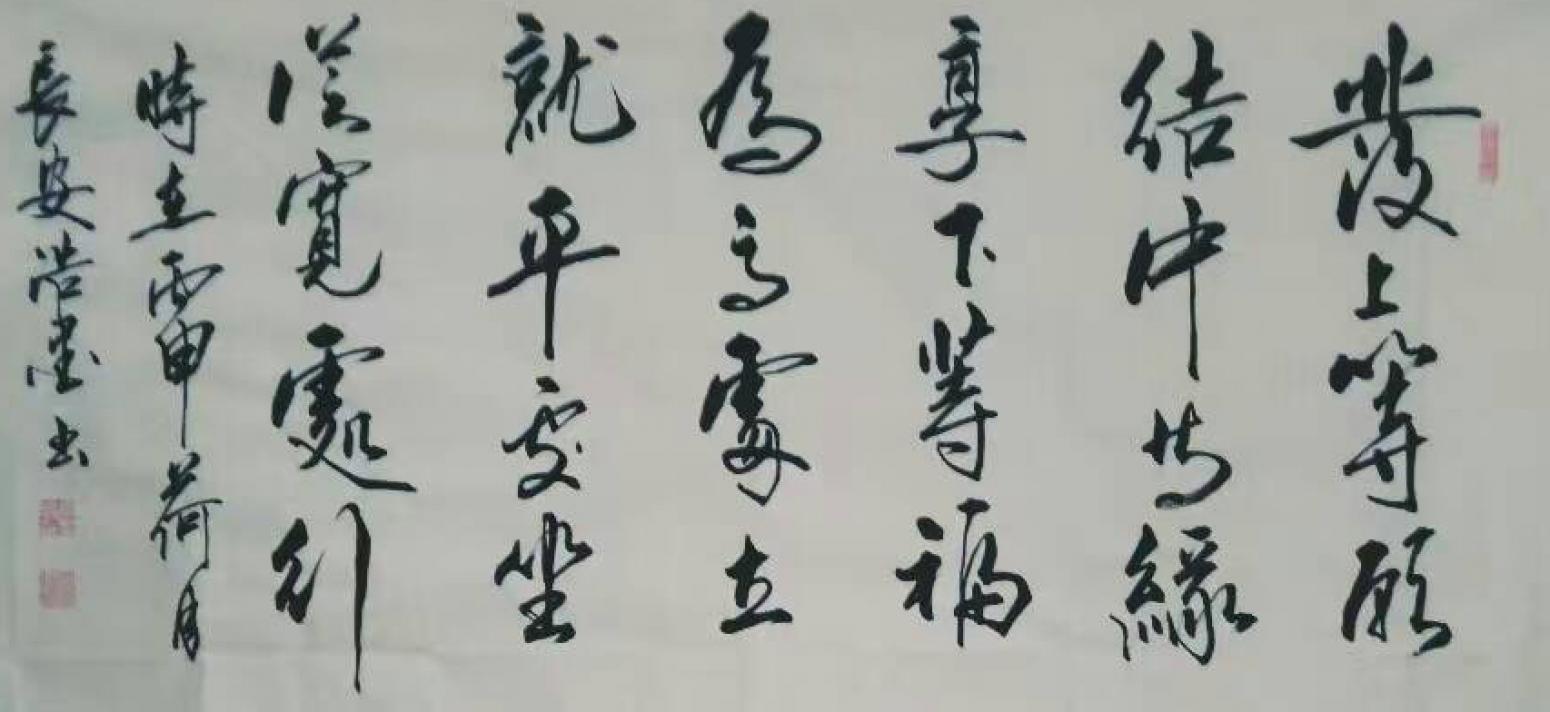 發上等願
結中等緣
享下等福
為高處立
就平處坐
從寬處行
時在丙申荷月
長安浩墨書